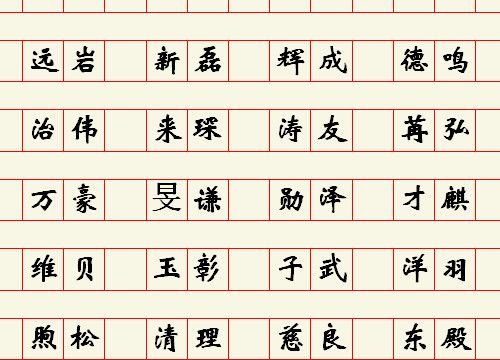 远岩 新磊 辉成 德鸣
治伟 来琛 涛友 苒弘
万豪 旻谦 勋泽 才麒
维贝 玉彰 子武 洋羽
煦松 清理 慈良 东殿